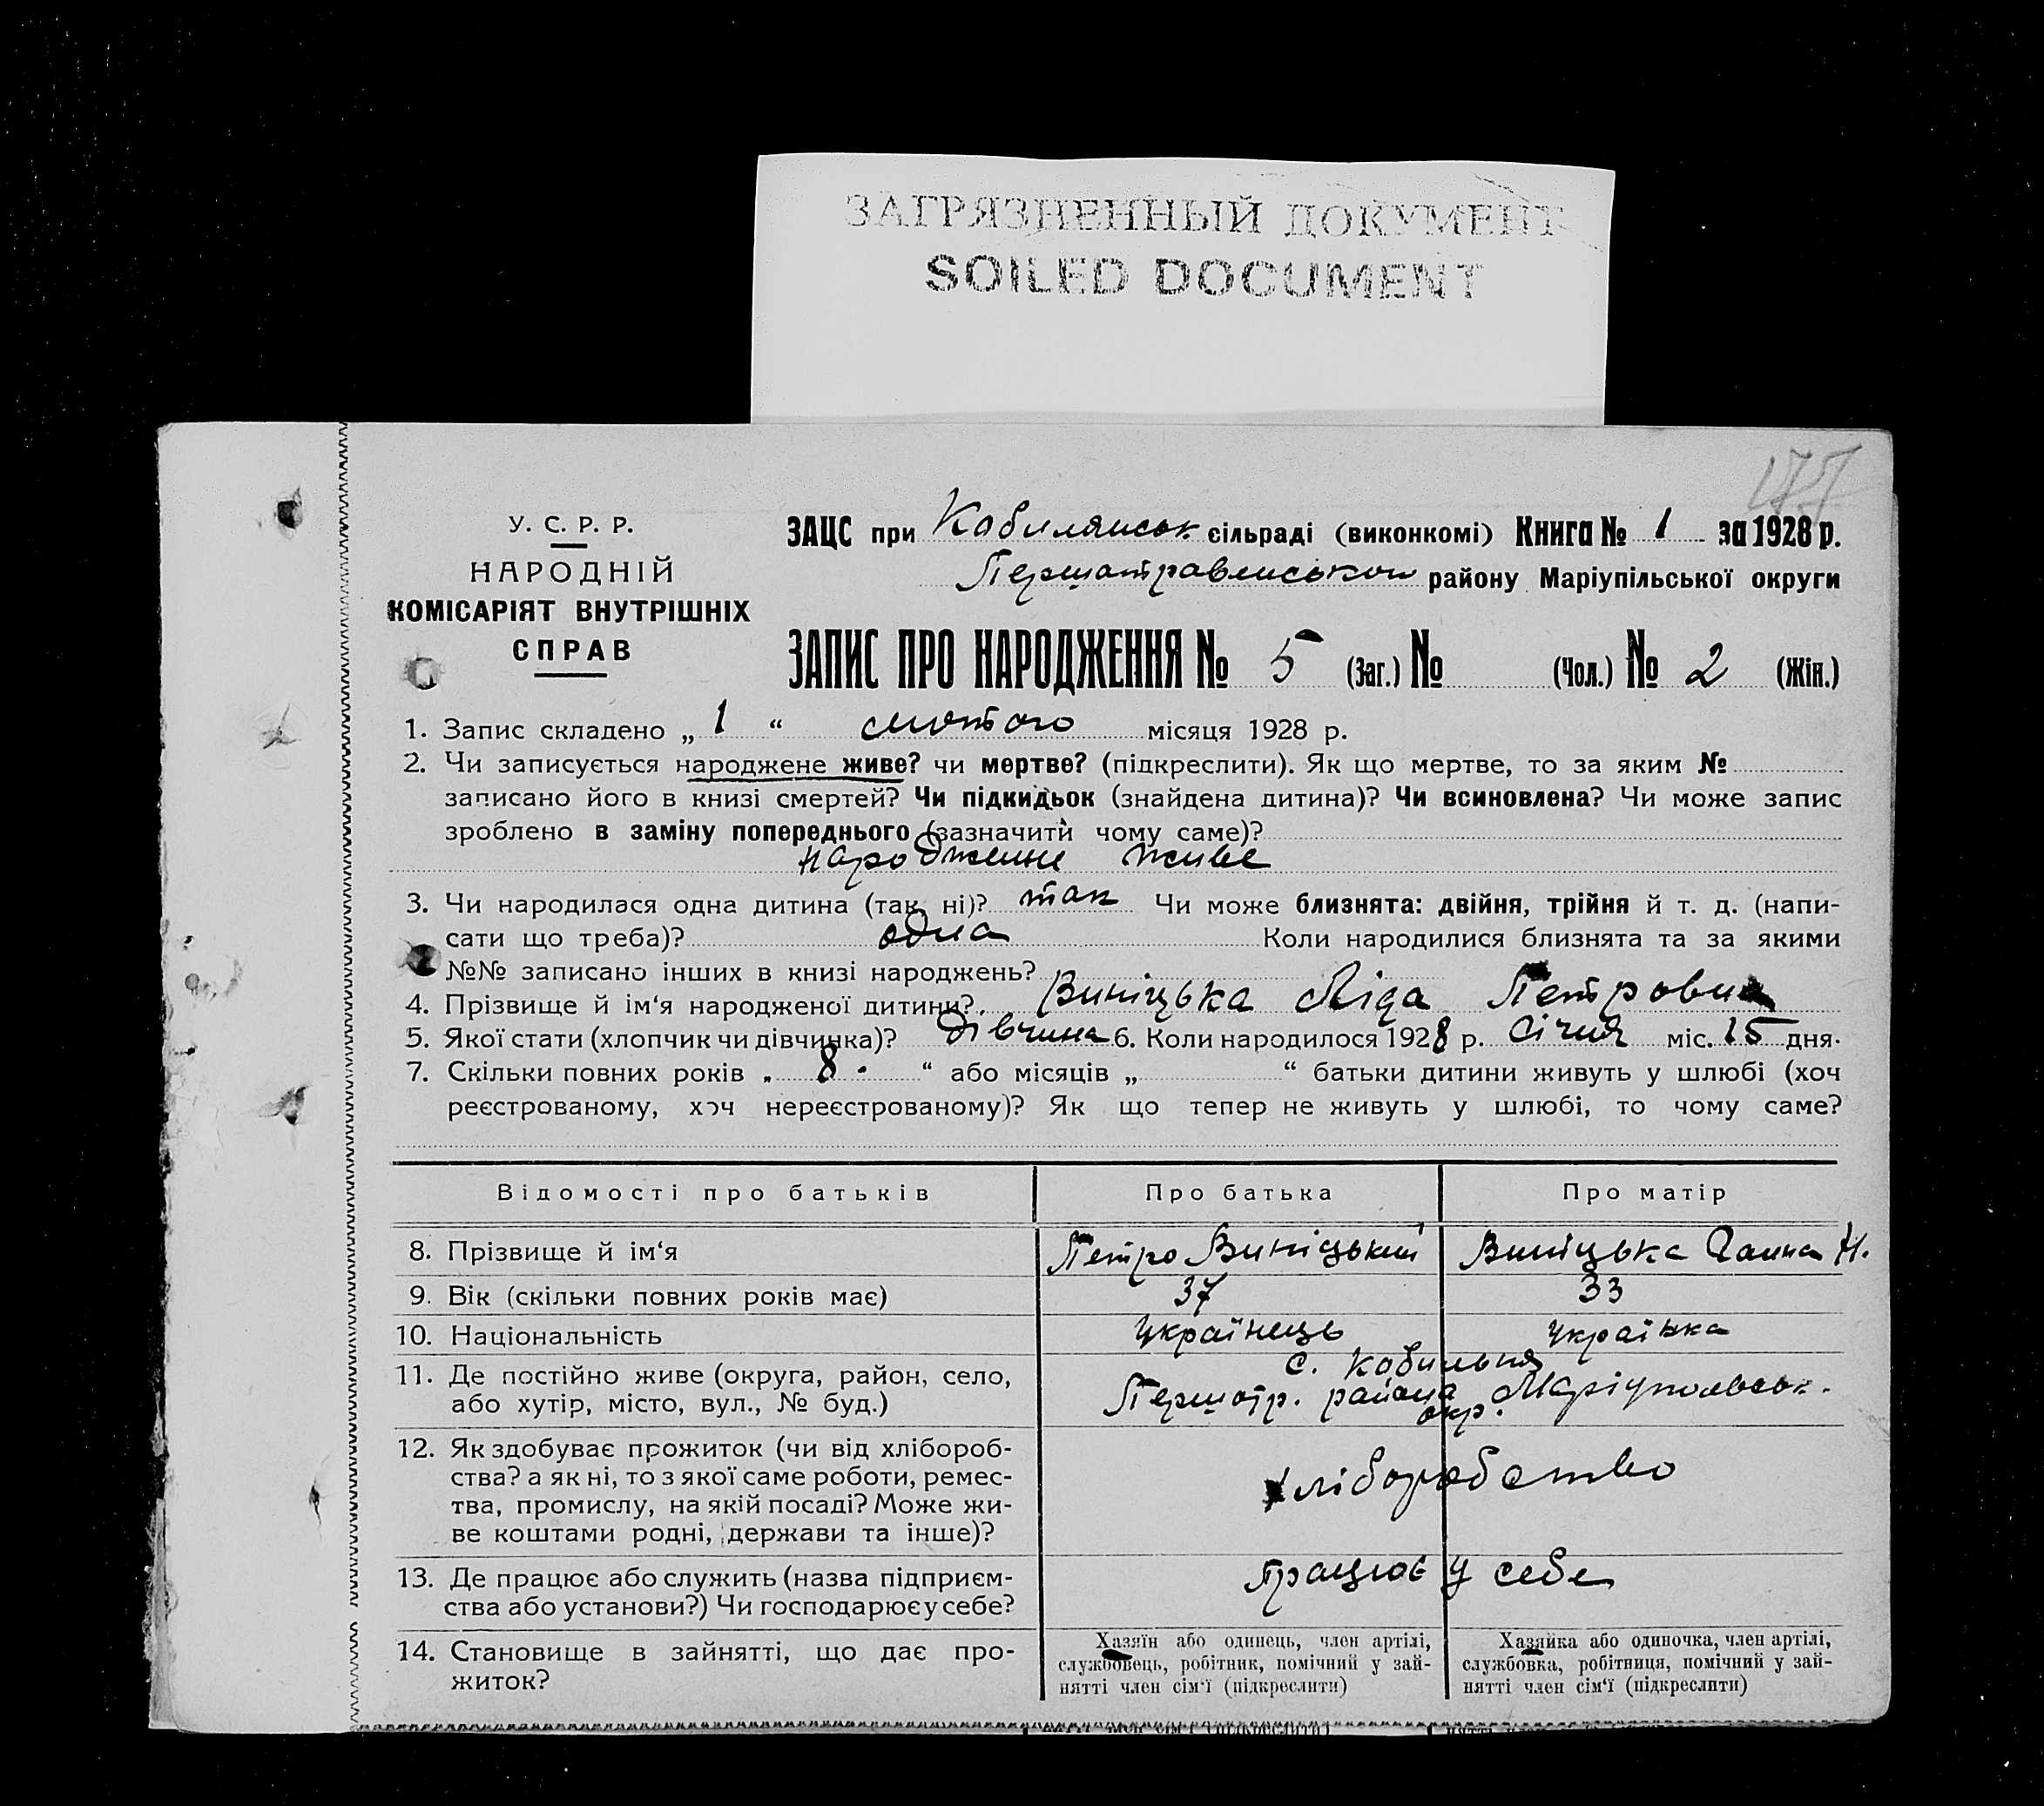 ЗАГРЯЗНЕННЫЙ ДОКУМЕНТ
SOILED DOCUMENT
177
У. С. Р. Р.
НАРОДНІЙ
КОМІСАРІЯТ ВНУТРІШНІХ
СПРАВ
ЗАЦС при Кобилянськ сільраді (виконкомі) Книга № 1 за 1928 р.
Першотравенського району Маріупільської округи
ЗАПИС ПРО НАРОДЖЕННЯ № 5 (Заг.) № (Чол.) № 2 (Жін.)
1. Запис складено „ 1 “ лютого місяця 1928 р.
2. Чи записується народжене живе? чи мертве? (підкреслити). Як що мертве, то за яким №
записано його в книзі смертей? Чи підкидьок (знайдена дитина)? Чи всиновлена? Чи може запис
зроблено в заміну попереднього (зазначити чому саме)?
народженне живе
3. Чи народилася одна дитина (так, ні)? так Чи може близнята: двійня, трійня й т. д. (напи-
сати що треба)? одна Коли народилися близнята та за якими
№№ записано інших в книзі народжень?
4. Прізвище й ім‘я народженої дитини? Виніцька Ліда Петровна
5. Якої стати (хлопчик чи дівчинка)? дівчина 6. Коли народилося 1928 р. Січня міс. 15 дня.
7. Скільки повних років „ 8 . “ або місяців „ “ батьки дитини живуть у шлюбі (хоч
реєстрованому, хоч нереєстрованому)? Як що тепер не живуть у шлюбі, то чому саме?
Відомості про батьків Про батька Про матір
8. Прізвище й ім‘я Петро Виніцький Виніцька Ганна Н.
9. Вік (скільки повних років має) 37 33
10. Національність Українець Українка
11. Де постійно живе (округа, район, село, с. Кобильня
або хутір, місто, вул., № буд.) Першотр. района Маріупольськ.
окр.
12. Як здобуває прожиток (чи від хлібороб-
ства? а як ні, то з якої саме роботи, ремес- хліборобство
тва, промислу, на якій посаді? Може жи-
ве коштами родні, держави та інше)?
13. Де працює або служить (назва підприєм- працює у себе
ства або установи?) Чи господарює у себе?
14. Становище в зайнятті, що дає про-
житок?
Хазяїн або одинець, член артілі,
службовець, робітник, помічний у зай-
нятті член сім‘ї (підкреслити)
Хазяйка або одиночка, член артілі,
службовка, робітниця, помічний у зай-
нятті член сім‘ї (підкреслити)